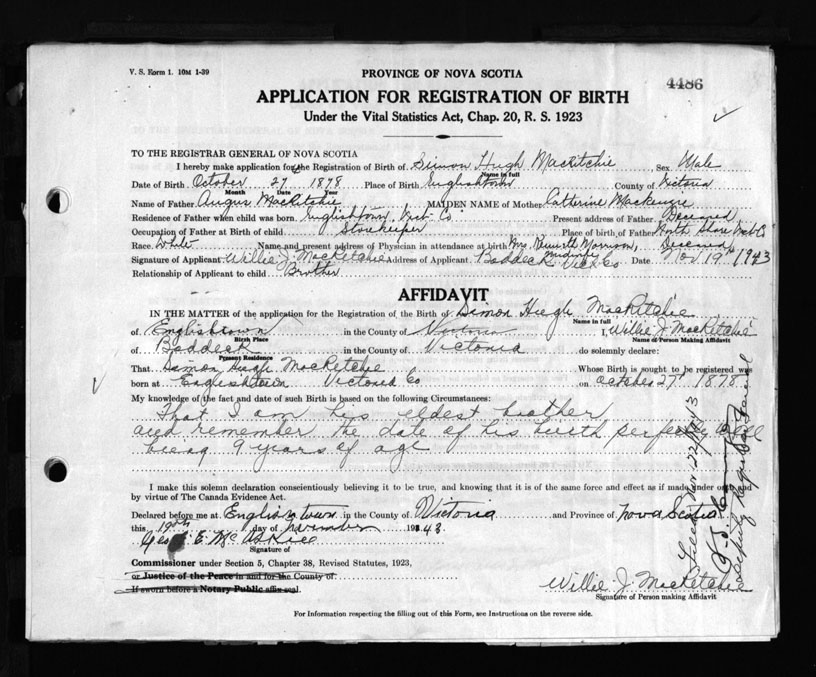 V. S. Form 1. 10M 1-39
PROVINCE OF NOVA SCOTIA
4486
APPLICATION FOR REGISTRATION OF BIRTH
Under the Vital Statistics Act, Chap. 20, R. S. 1923
TO THE REGISTRAR GENERAL OF NOVA SCOTIA
I hereby make application for the Registration of Birth of Simon Hugh MacRitchie Sex Male
Name in full
Date of Birth October 27 1878 Place of Birth Englishtown County of Victoria
Month Date Year
Name of Father Angus MacRitchie MAIDEN NAME of Mother Catherine Mackenzie
Residence of Father when child was born Englishtown Vict Co. Present address of Father Deceased
Occupation of Father at Birth of child Storekeeper Place of birth of Father North Shore Vict Co
Race White Name and present address of Physician in attendance at birth Mrs. Kenneth Morrison, Deceased
midwife
Signature of Applicant Willie J. MacRitchie Address of Applicant Baddeck Vict Co Date Nov 19th 1943
Relationship of Applicant to child Brother
AFFIDAVIT
IN THE MATTER of the application for the Registration of the Birth of Simon Hugh MacRitchie
Name in full
of Englishtown in the County of Victoria I, Willie J. MacRitchie
Birth Place Name of Person Making Affidavit
of Baddeck in the County of Victoria do solemnly declare:
Present Residence
That Simon Hugh MacRitchie Whose Birth is sought to be registered was
born at Englishtown Victoria Co on October 27 1878
My knowledge of the fact and date of such Birth is based on the following Circumstances:
That I am his eldest brother
and remember the date of his birth perfectly well
being 9 years of age
I make this solemn declaration conscientiously believing it to be true, and knowing that it is of the same force and effect as if made under oath and
by virtue of The Canada Evidence Act.
Declared before me at Englishtown in the County of Victoria and Province of Nova Scotia
this 19th day of November 1943.
Geo. E. McAskill
Signature of
Commissioner under Section 5, Chapter 38, Revised Statutes, 1923,
or Justice of the Peace in and for the County of
If sworn before a Notary Public affix seal.
Willie J. MacRitchie
Signature of Person making Affidavit
For Information respecting the filling out of this Form, see Instructions on the reverse side.
Filed Nov 22 1943
Deputy Registrar General